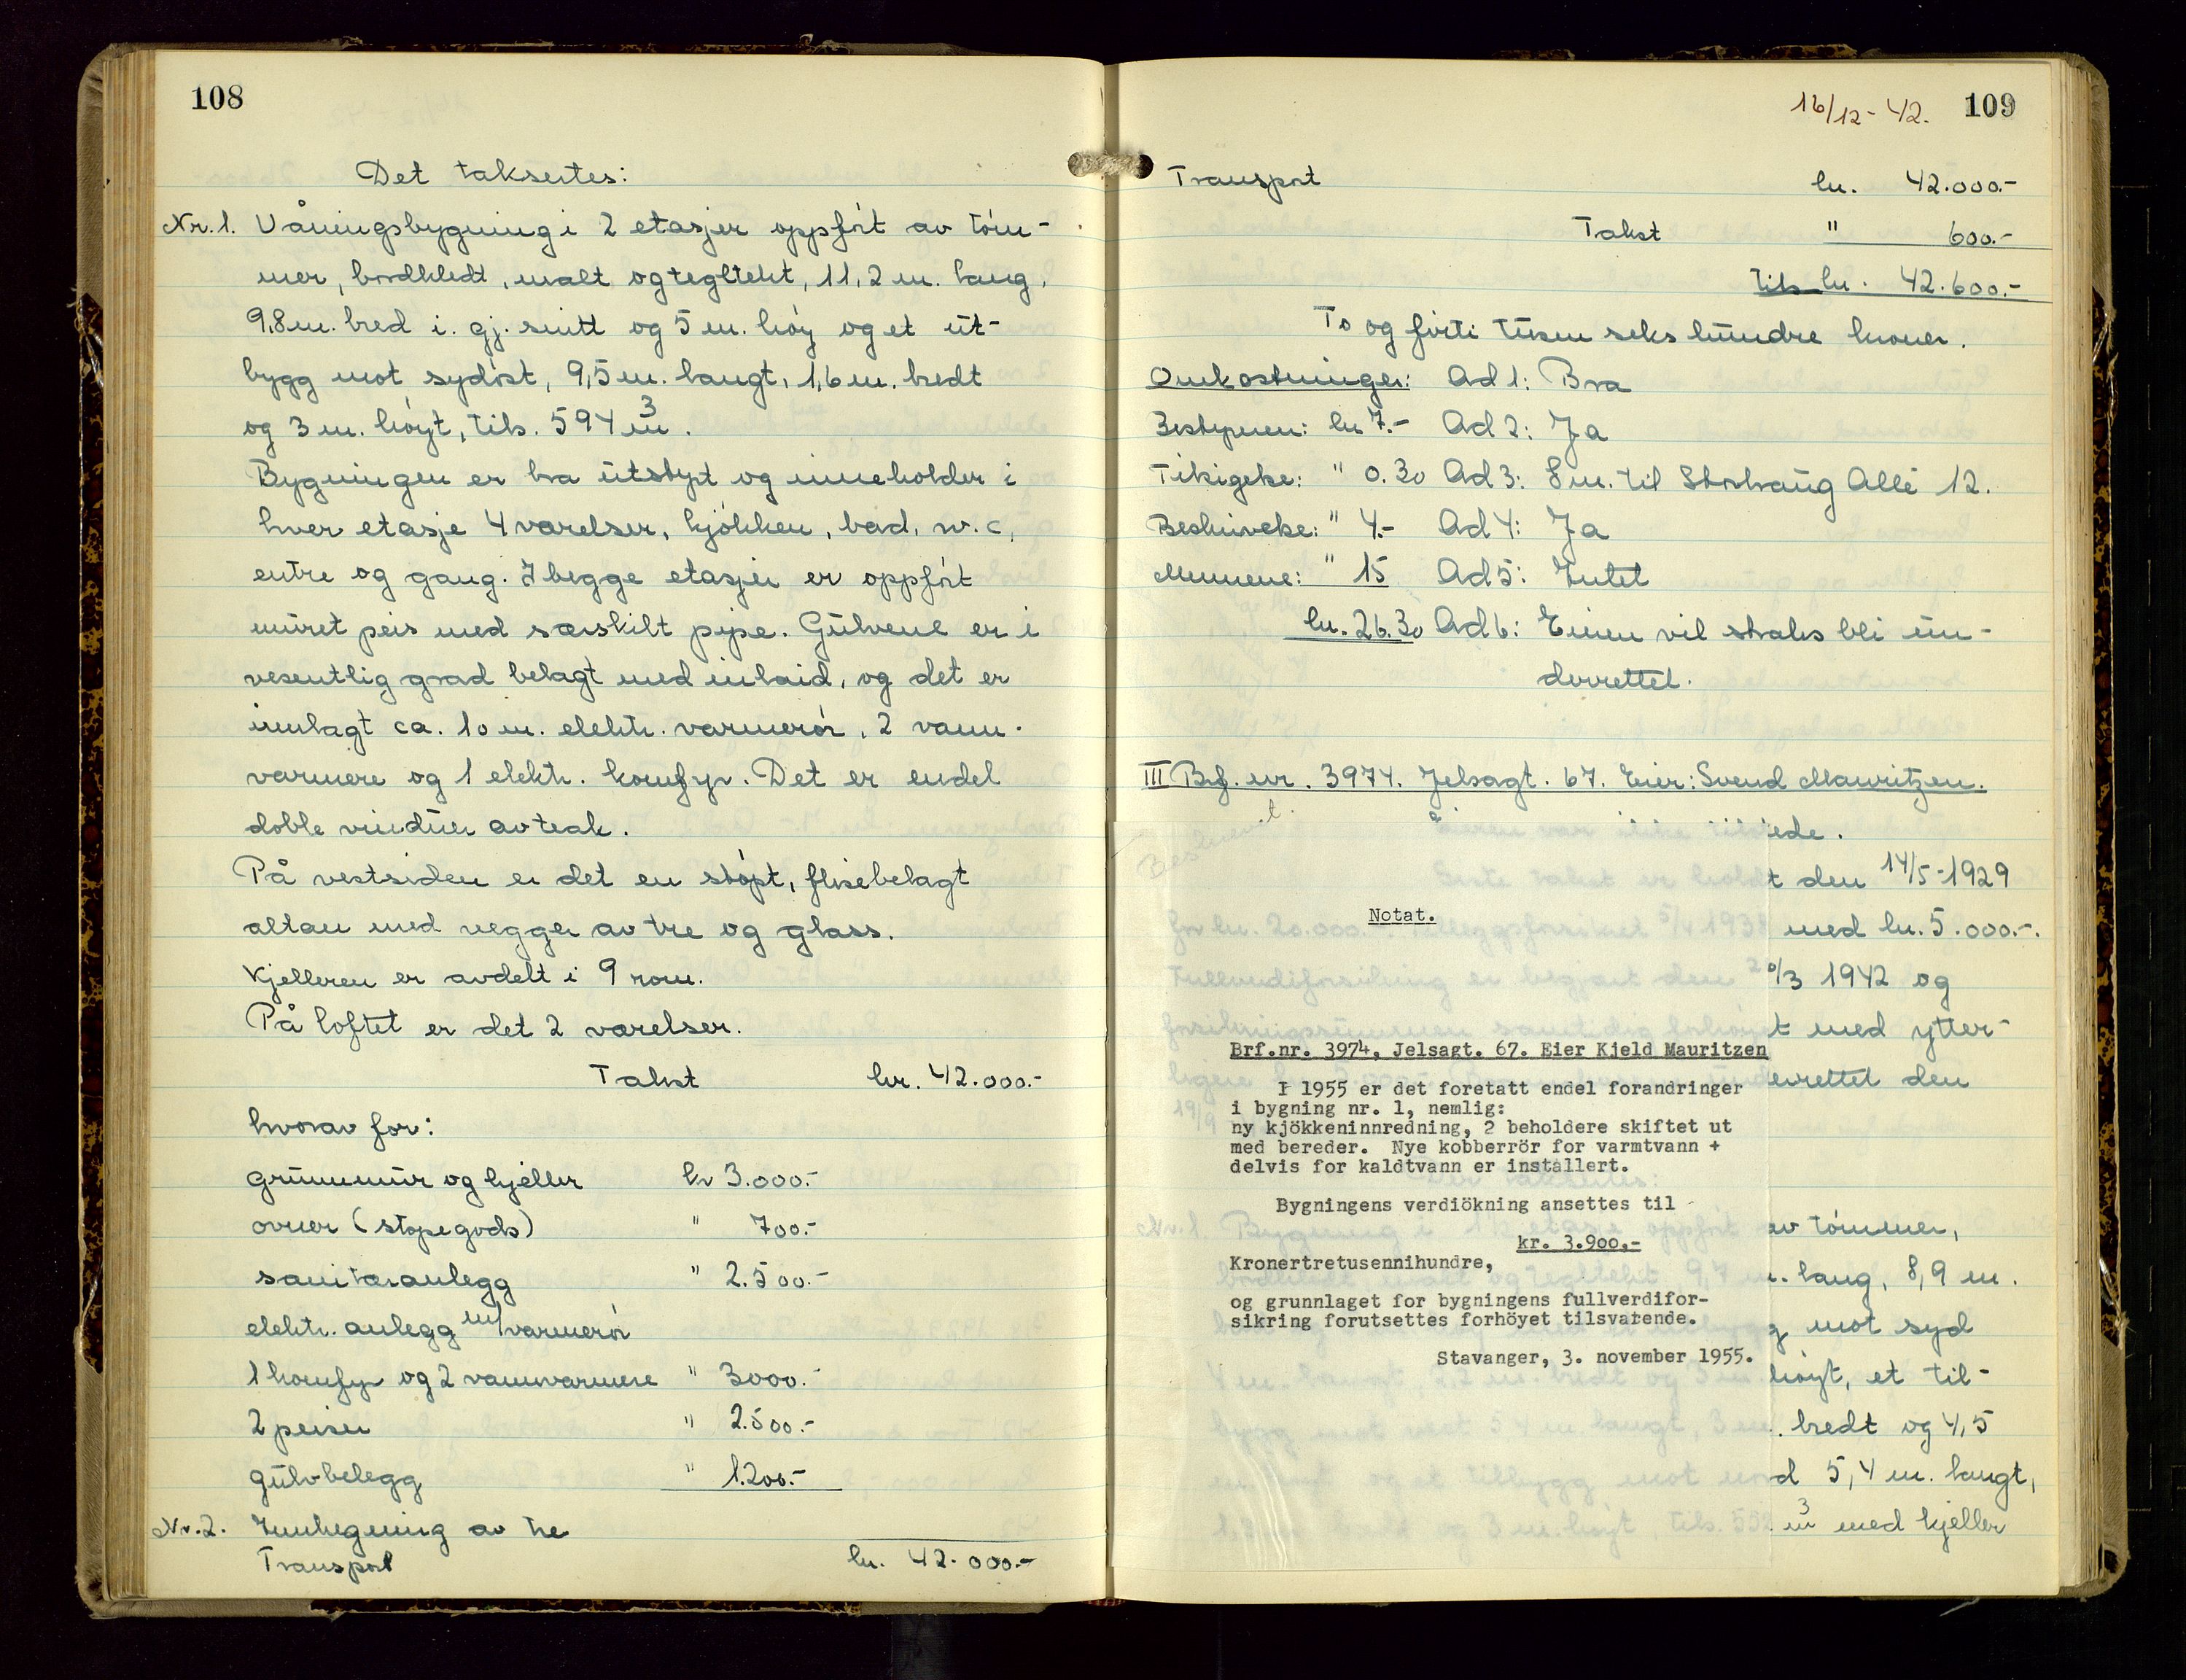 108
Det takseites:
Nr. 1. Våningsbygning i 2 etasjer oppført av tøm-
mer, bordkledt, malt og tegltekt, 11,2 m. lang,
9,8 m. bred i. gj. snitt og 5 m. høy og et ut-
bygg mot sydøst, 9,5 m. langt, 1,6 m. bredt
og 3 m. høyt, tils. 594 m³.
Bygningen er bra utstyrt og inneholder i
hver etasje 4 værelser, kjøkken, bad, w.c,
entre og gang. I begge etasjer er oppført
muret peis med særskilt pipe. Gulvene er i
vesentlig grad belagt med inlaid, og det er
innlagt ca. 10 m. elektr. varmerør, 2 vann-
varmere og 1 elektr. komfyr. Det er endel
doble vinduer av teak.
På vestsiden er det en støpt, flisebelagt
altan med vegger av tre og glass.
Kjelleren er avdelt i 9 rom.
På loftet er det 2 værelser.
Takst kr. 42.000.-
hvorav for:
grunnmur og kjeller kr 3.000.-
ovner (støpegods) " 700.-
sanitæranlegg " 2.500.-
elektr. anlegg m/varmerør
1 komfyr og 2 vannvarmere " 3000.-
2 peiser " 2.500.-
gulvbelegg " 1.200.-
Nr. 2. Innhegning av tre
Transport kr. 42.000.-
16/12-42. 109
Transport kr. 42.000.-
Takst " 600.-
tils kr. 42.600.-
To og førti tusen seks hundre kroner.
Omkostninger: Ad 1: Bra
Bestyreren: kr 7.- Ad 2: Ja
Tilsigelse: " 0.30 Ad 3: 8 m. til Storhaug Allé 12.
Beskrivelse: " 4.- Ad 4: Ja
Mennene: " 15 Ad 5: Intet
kr. 26.30 Ad 6: Eieren vil straks bli un-
derrettet.
III Brf. nr. 3974. Jelsagt. 67. Eier: Svend Mauritzen.
Beskrevet.
Eieren var ikke tilstede.
Siste takst er holdt den 14/5-1929
for kr. 20.000.- Tilleggsforsikret 5/4 1938 med kr. 5.000.-.
Fullverdiforsikring er begjært den 20/3 1942 og
forsikringssummen samtidig forhøyet med ytter-
underrettet den
19/9
Notat.
Brf.nr. 3974, Jelsagt. 67. Eier Kjeld Mauritzen
I 1955 er det foretatt endel forandringer
i bygning nr. 1, nemlig:
ny kjökkeninnredning, 2 beholdere skiftet ut
med bereder. Nye kobberrör for varmtvann +
delvis for kaldtvann er installert.
Bygningens verdiökning ansettes til
kr. 3.900,-
Kronertretusennihundre,
og grunnlaget for bygningens fullverdifor-
sikring forutsettes forhöyet tilsvarende.
Stavanger, 3. november 1955.
Det takseites:
Nr. 1. Bygning i 1½ etasje oppført av tømmer,
bordkledt, malt og tegltekt, 9,7 m. lang, 8,9 m.
mot syd
høyt, et til-
bygg mot vest 5,4 m. langt, 3 m. bredt og 4,5
og et tilbygg mot nord 5,4 m. langt,
og 3 m. høyt, tils. 552 m³ med kjeller